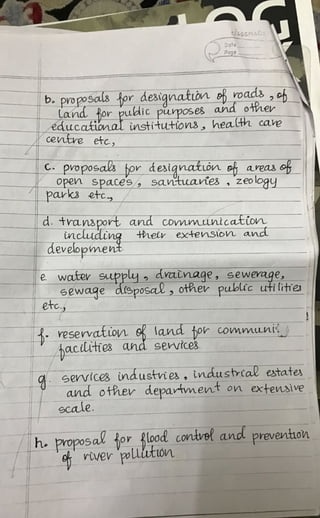 classmate
Date
Page
b. proposals for designation of roads, of
land for public purposes and other
educational institutions, health care
centre etc,
c. proposals for designation of areas of
open spaces, santuaries, zeology
parks etc.,
d. transport and communication
including their extension and
development
e water supply, drainage, sewerage,
sewage disposal, other public utilities
etc.,
f. reservation of land for communi
facilities and services
g. services industries, industrial estates
and other department on extensive
scale.
h. proposal for flood control and prevention
of river pollution